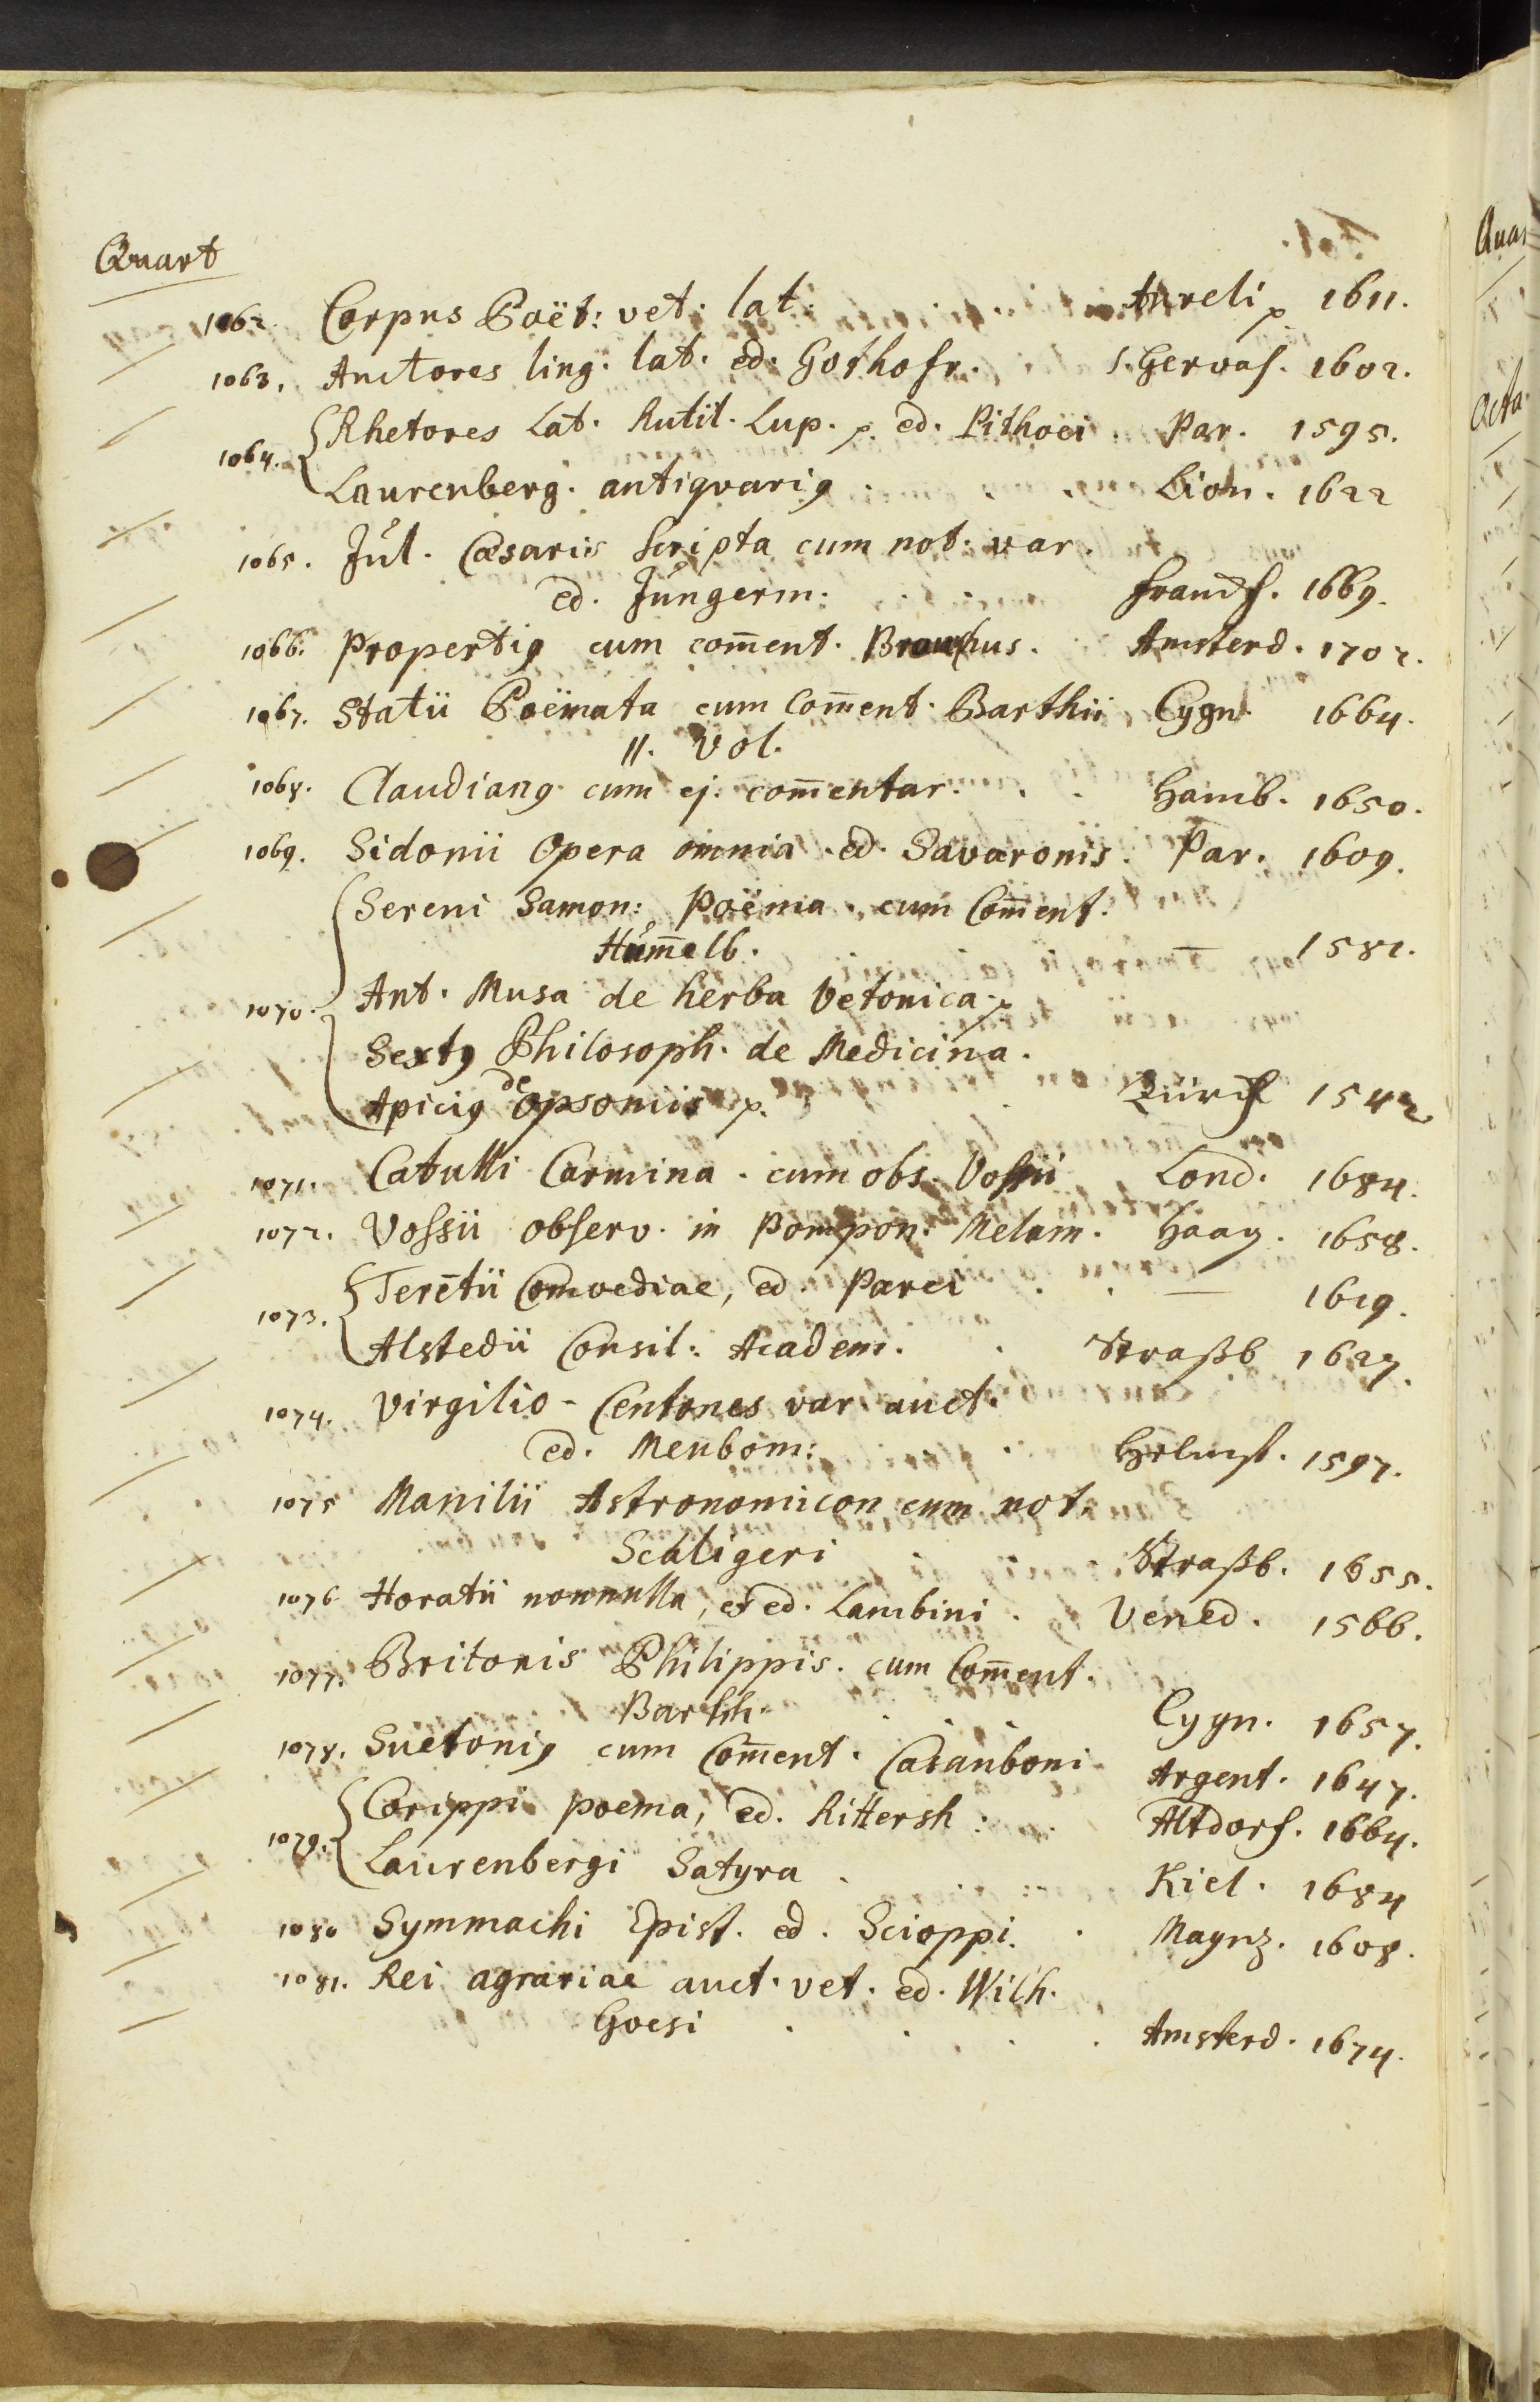 Quart
1062. Corpus Poët: vet: lat. Aureli p 1611.
1063. Auctores ling. lat. ed. Gothofr. S. Gervas. 1602.
1064. Rhetores Lat. Rutil. Lup. p. ed. Pithoei. Par. 1595.
Laurenberg. antiquari9 Lion. 1622
1065. Jul. Cæsaris scripta cum not. var.
ed. Jungerm: Francf. 1669.
1066. Properti9 cum com̄ent. Brouchus. Amsterd. 1702.
1067. Statii Poëmata cum Com̄ent. Barthii Cygn. 1664.
II. Vol.
1068. Claudian9 cum ej. com̄entar. Hamb. 1650.
1069. Sidonii Opera omnia ed. Savaronis. Par. 1609.
Sereni Samon: Poëma. cum Com̄ent.
Hum̄elb. — 1581.
1070. Ant. Musa de herba Vetonica p
Sext9 Philosoph. de Medicina.
Apici9 de Opsoniis p. Zürch 1542
1071. Catulli Carmina. cum obs. Vossii Lond. 1684.
1072. Vossii observ. in Pompon. Melam. Haag. 1658.
1073. Terētii Comoediae, ed. Parei — 1619.
Alstedii Consil: Academ. Straßb 1627.
1074. Virgilio-Centones var. auct.
ed. Meubom: Helmst. 1597.
1075 Manilii Astronomicon cum not.
Scaligeri Straßb. 1655.
1076 Horatii nonnulla, ex ed. Lambini. Vened. 1566.
1077. Britonis Philippis. cum Com̄ent.
Barthh. Cygn. 1657.
1078. Sueton9 cum Com̄ent. Casauboni Argent. 1647.
1079. Corippi poema, ed. Rittersh: Altdorf. 1664.
Laurenbergi Satyra Kiel. 1684
1080 Symmachi Epist. ed. Scioppi. Maynz. 1608.
1081. Rei agrariae auct. vet. ed. Wilh.
Goesi Amsterd. 1674.